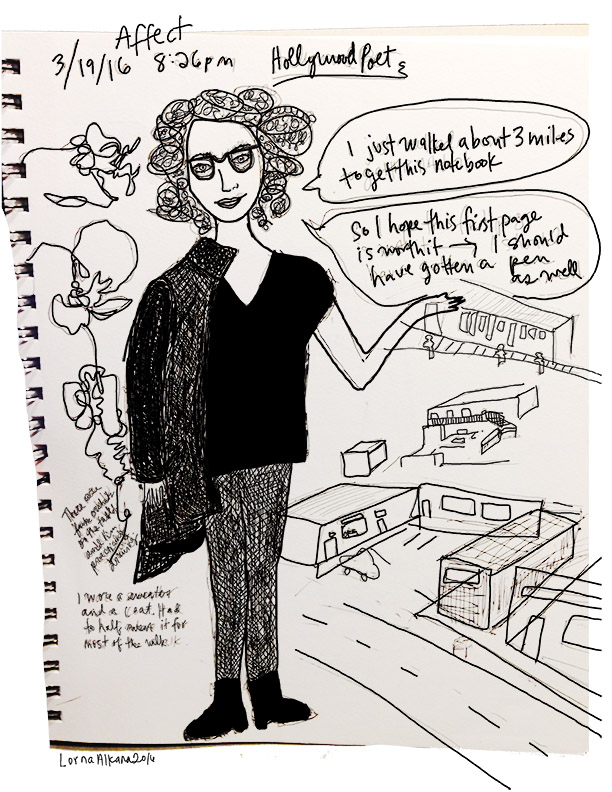 Affect
3/19/16 8:26pm
Hollywood Poet
I just walked about 3 miles
to get this notebook
So I hope this first page
is worth it → I should
have gotten a pen
as well
There were
fake orchids
on the table
and I'm
I wore a sweater
and a coat. Had
to half it for
most of the walk.
Lorna Alkana 2016